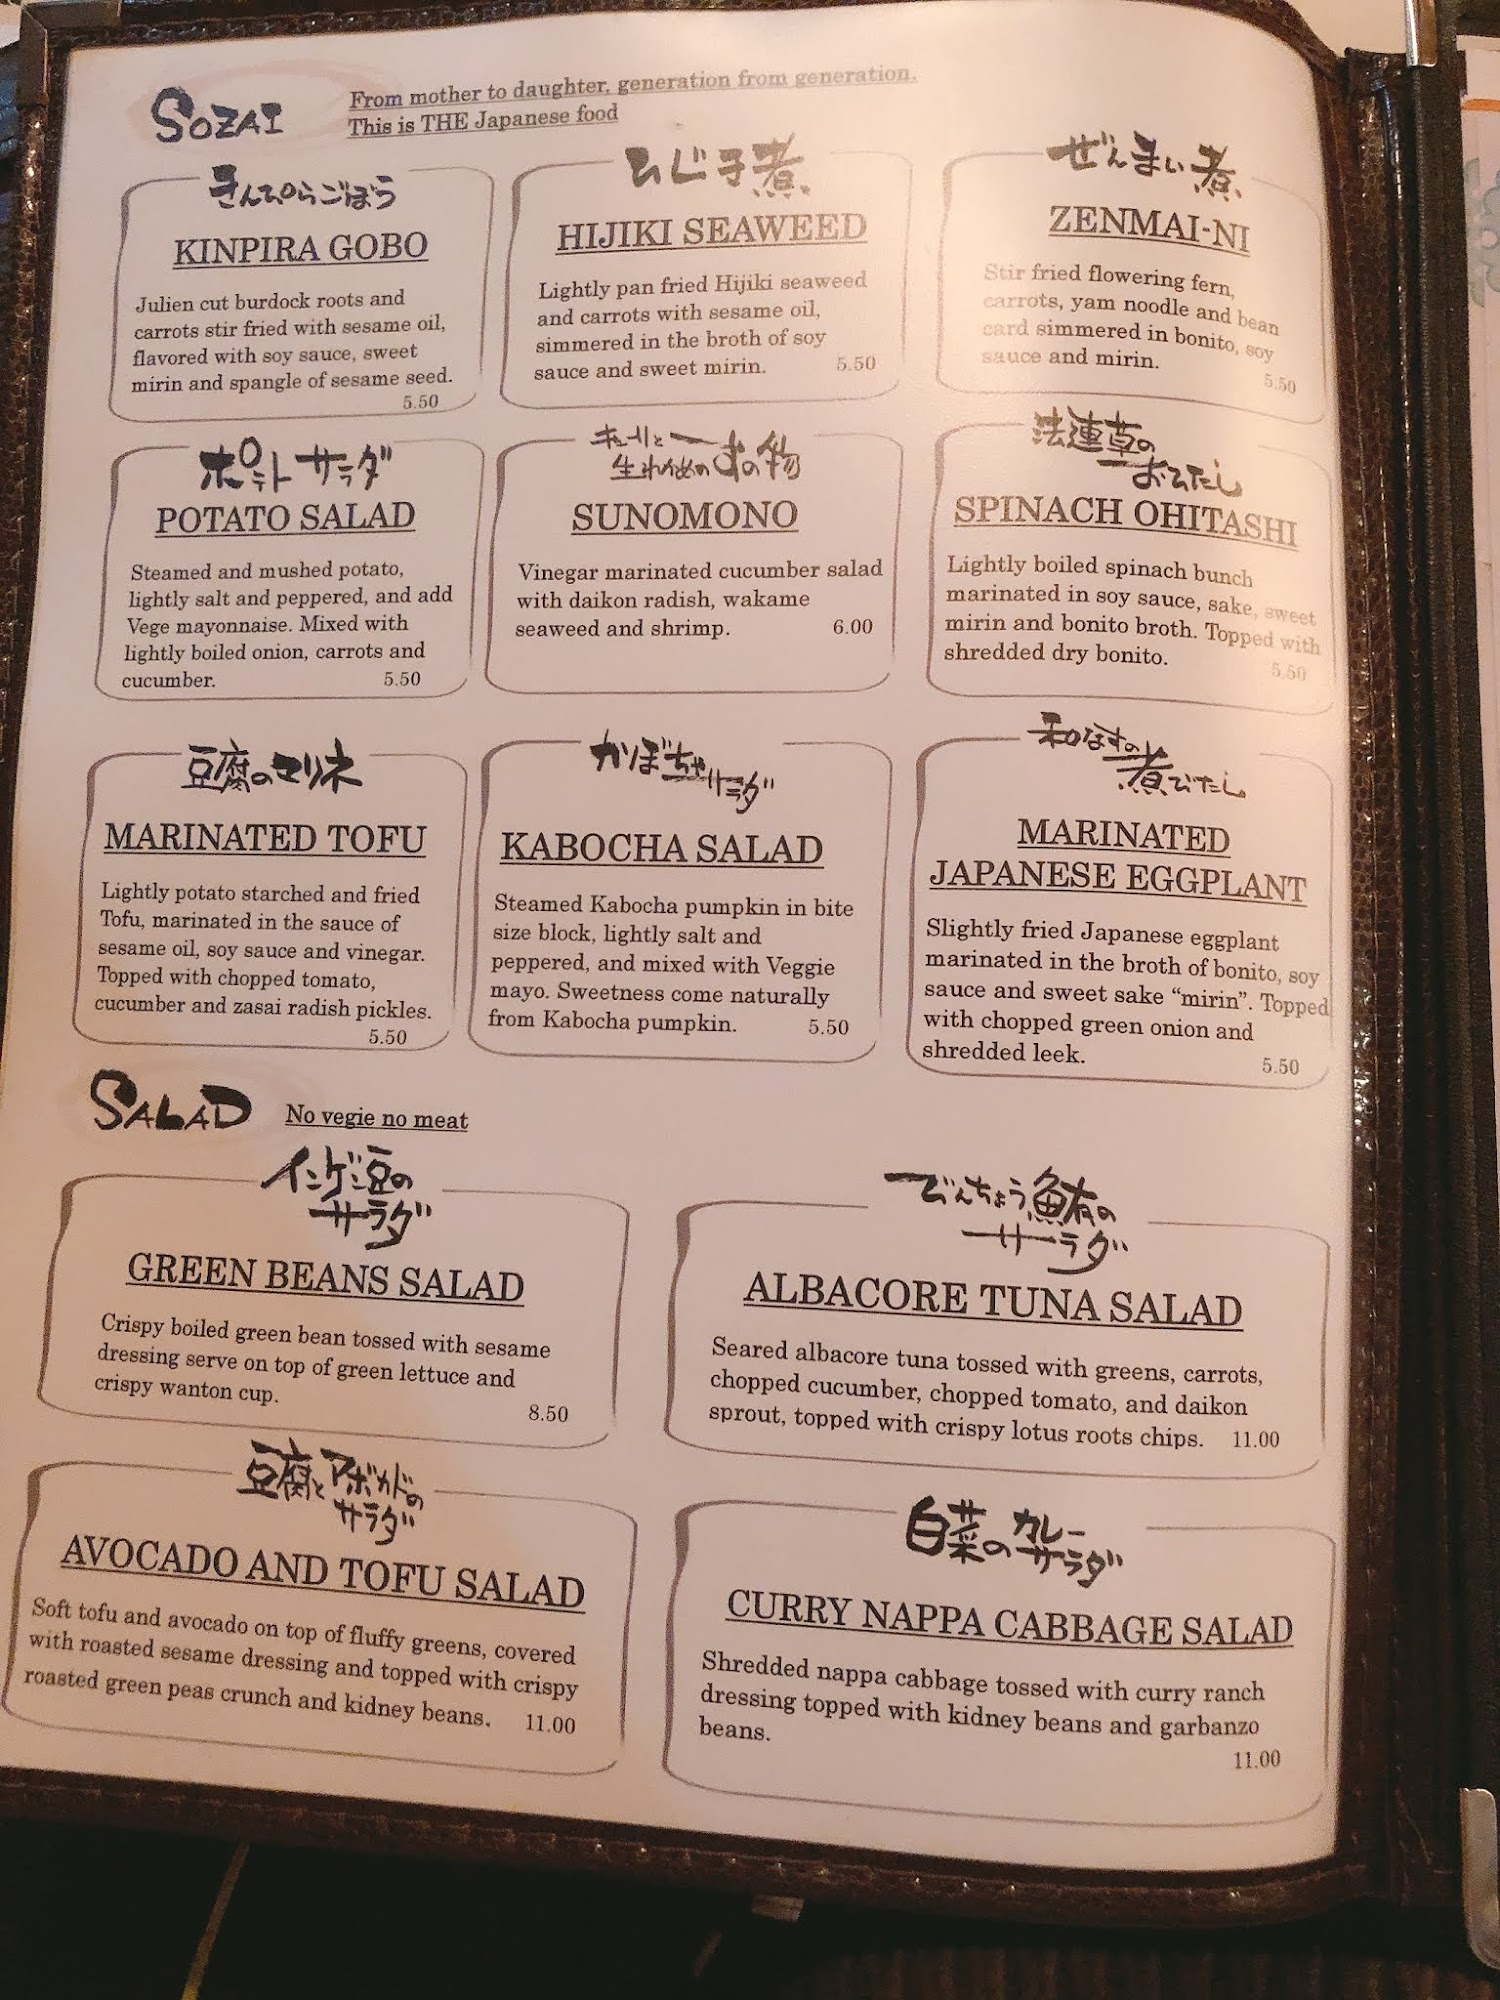 SOZAI
From mother to daughter, generation from generation.
This is THE Japanese food
きんぴらごぼう
KINPIRA GOBO
Julien cut burdock roots and
carrots stir fried with sesame oil,
flavored with soy sauce, sweet
mirin and spangle of sesame seed.
5.50
ひじき煮
HIJIKI SEAWEED
Lightly pan fried Hijiki seaweed
and carrots with sesame oil,
simmered in the broth of soy
sauce and sweet mirin. 5.50
ぜんまい煮
ZENMAI-NI
Stir fried flowering fern,
carrots, yam noodle and bean
card simmered in bonito, soy
sauce and mirin.
5.50
ポテトサラダ
POTATO SALAD
Steamed and mushed potato,
lightly salt and peppered, and add
Vege mayonnaise. Mixed with
lightly boiled onion, carrots and
cucumber. 5.50
の物
SUNOMONO
Vinegar marinated cucumber salad
with daikon radish, wakame
seaweed and shrimp. 6.00
法連草の
おひたし
SPINACH OHITASHI
Lightly boiled spinach bunch
marinated in soy sauce, sake, sweet
mirin and bonito broth. Topped with
shredded dry bonito. 5.50
豆腐のマリネ
MARINATED TOFU
Lightly potato starched and fried
Tofu, marinated in the sauce of
sesame oil, soy sauce and vinegar.
Topped with chopped tomato,
cucumber and zasai radish pickles.
5.50
かぼちゃサラダ
KABOCHA SALAD
Steamed Kabocha pumpkin in bite
size block, lightly salt and
peppered, and mixed with Veggie
mayo. Sweetness come naturally
from Kabocha pumpkin. 5.50
和なすの
煮びたし
MARINATED
JAPANESE EGGPLANT
Slightly fried Japanese eggplant
marinated in the broth of bonito, soy
sauce and sweet sake “mirin”. Topped
with chopped green onion and
shredded leek. 5.50
SALAD
No vegie no meat
インゲン豆の
サラダ
GREEN BEANS SALAD
Crispy boiled green bean tossed with sesame
dressing serve on top of green lettuce and
crispy wanton cup.
8.50
びんちょう鮪の
サラダ
ALBACORE TUNA SALAD
Seared albacore tuna tossed with greens, carrots,
chopped cucumber, chopped tomato, and daikon
sprout, topped with crispy lotus roots chips. 11.00
豆腐とアボカドの
サラダ
AVOCADO AND TOFU SALAD
Soft tofu and avocado on top of fluffy greens, covered
with roasted sesame dressing and topped with crispy
roasted green peas crunch and kidney beans. 11.00
白菜のカレー
サラダ
CURRY NAPPA CABBAGE SALAD
Shredded nappa cabbage tossed with curry ranch
dressing topped with kidney beans and garbanzo
beans.
11.00